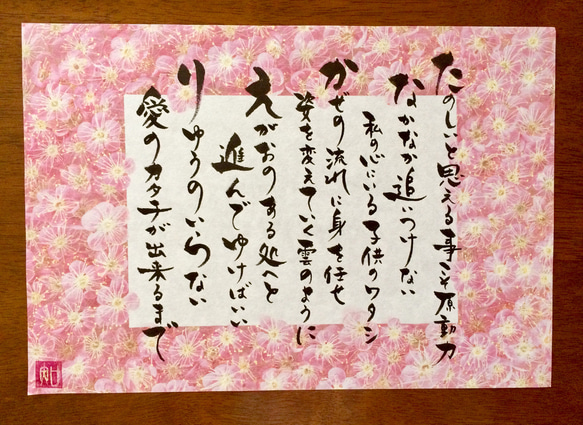 たのしいと思える事こそ原動力
なかなか追いつけない
私の心にいる子供のワタシ
かぜの流れに身を任せ
姿を変えていく雲のように
えがおのある処へと
進んでゆけばいい
りゆうのいらない
愛のカタチが出来るまで